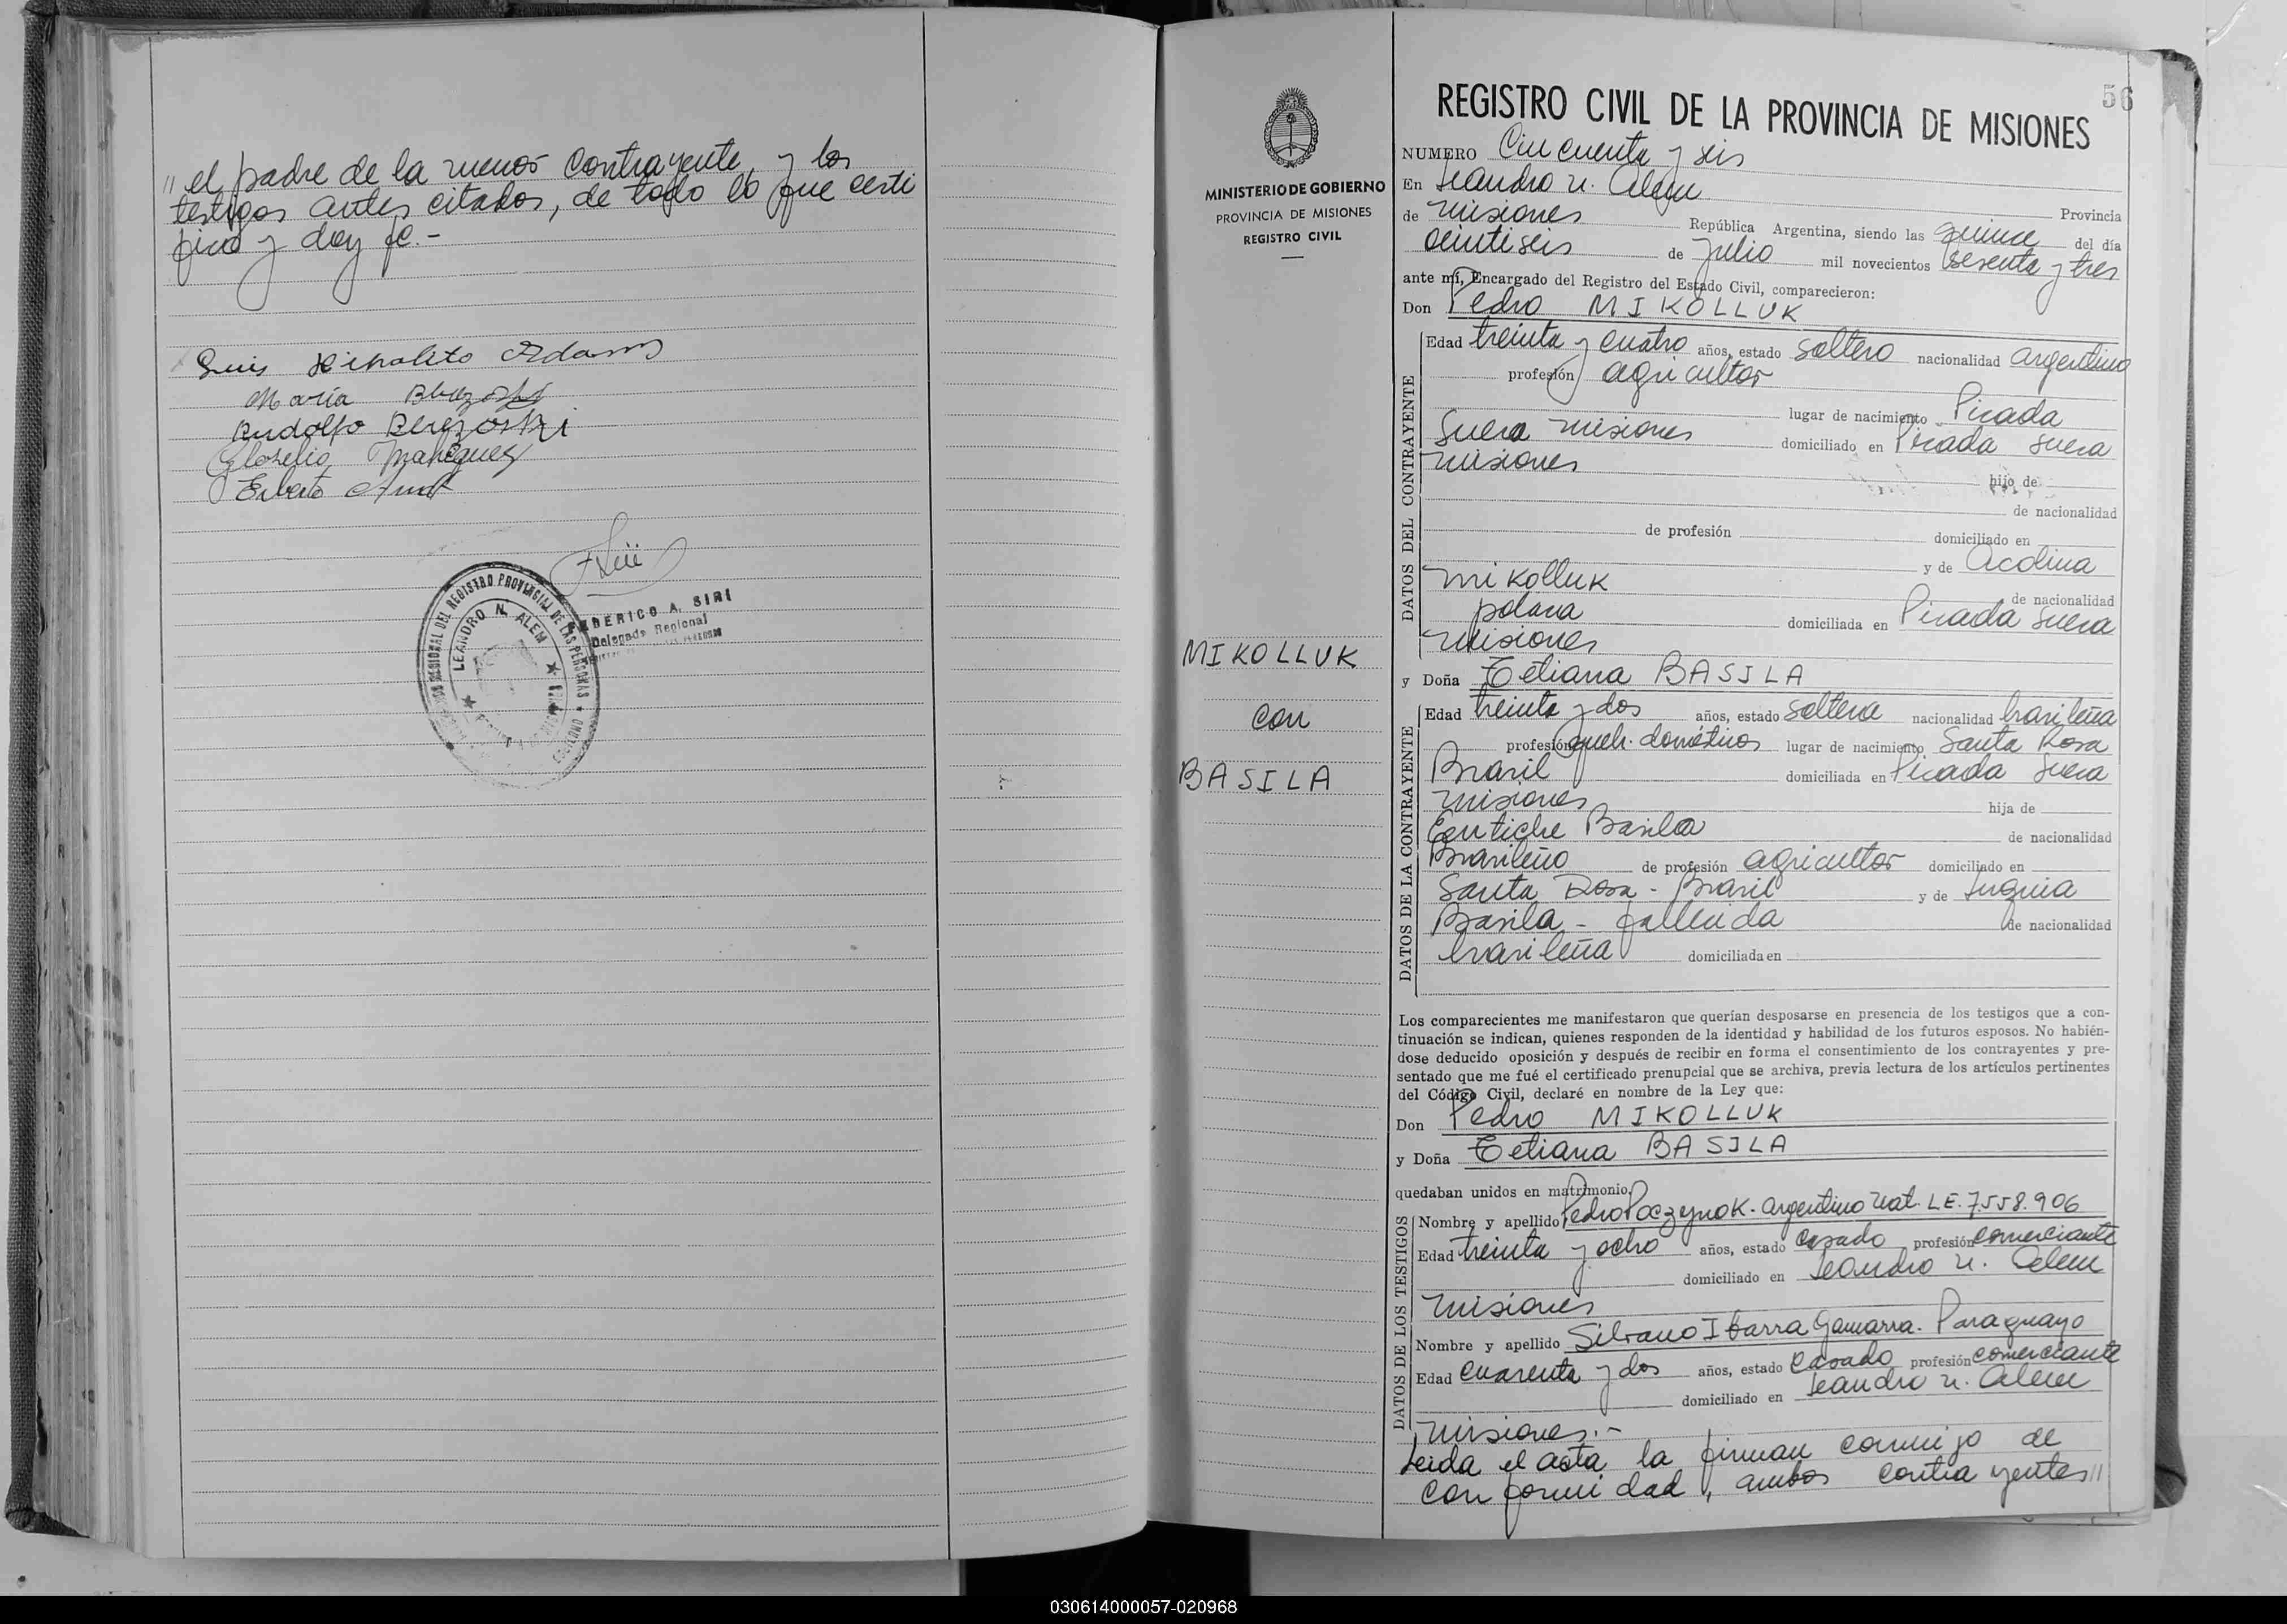 " el padre de la menor contrayente y los
testigos antes citados, de todo lo que certi
fico y doy fe.-
Luis Hipolito Adams
María
Rodolfo Berezoski
Erberto
FEDERICO A. SIRI
Delegado Regional
REGIONAL DEL REGISTRO PROVINCIAL DE LAS PERSONAS
LEANDRO N. ALEM
MINISTERIO DE GOBIERNO
PROVINCIA DE MISIONES
REGISTRO CIVIL
MIKOLLUK
con
BASILA
56
REGISTRO CIVIL DE LA PROVINCIA DE MISIONES
NUMERO Cincuenta y seis
En Leandro N. Alem
Provincia
de Misiones República Argentina, siendo las quince del día
veintiseis de Julio mil novecientos sesenta y tres
ante mí, Encargado del Registro del Estado Civil, comparecieron:
Don Pedro MIKOLLUK
DATOS DEL CONTRAYENTE
Edad treinta y cuatro años, estado soltero nacionalidad argentino
profesión agricultor
lugar de nacimiento Picada
Suera Misiones domiciliado en Picada Suera
Misiones
hijo de
de nacionalidad
de profesión domiciliado en
y de Acolina
Mikolluk de nacionalidad
polaca domiciliada en Picada Suera
Misiones
y Doña Tetiana BASILA
DATOS DE LA CONTRAYENTE
Edad treinta y dos años, estado soltera nacionalidad brasileña
profesión queh. domésticos lugar de nacimiento Santa Rosa
Brasil domiciliada en Picada Suera
Misiones hija de
Eutiche Basila de nacionalidad
Brasileño de profesión agricultor domiciliado en
Santa Rosa - Brasil y de
Basila - fallecida de nacionalidad
brasileña domiciliada en
Los comparecientes me manifestaron que querían desposarse en presencia de los testigos que a con-
tinuación se indican, quienes responden de la identidad y habilidad de los futuros esposos. No habién-
dose deducido oposición y después de recibir en forma el consentimiento de los contrayentes y pre-
sentado que me fué el certificado prenupcial que se archiva, previa lectura de los artículos pertinentes
del Código Civil, declaré en nombre de la Ley que:
Don Pedro MIKOLLUK
y Doña Tetiana BASILA
quedaban unidos en matrimonio.
DATOS DE LOS TESTIGOS
Nombre y apellido Pedro Poczynok. Argentino nat. L E. 7.558.906
Edad treinta y ocho años, estado casado profesión comerciante
domiciliado en Leandro N. Alem
Misiones
Nombre y apellido Silvano Ibarra Gamarra. Paraguayo
Edad cuarenta y dos años, estado casado profesión comerciante
domiciliado en Leandro N. Alem
Misiones.-
Leida el acta la firman conmigo de
conformidad, ambos contrayentes"
030614000057-020968